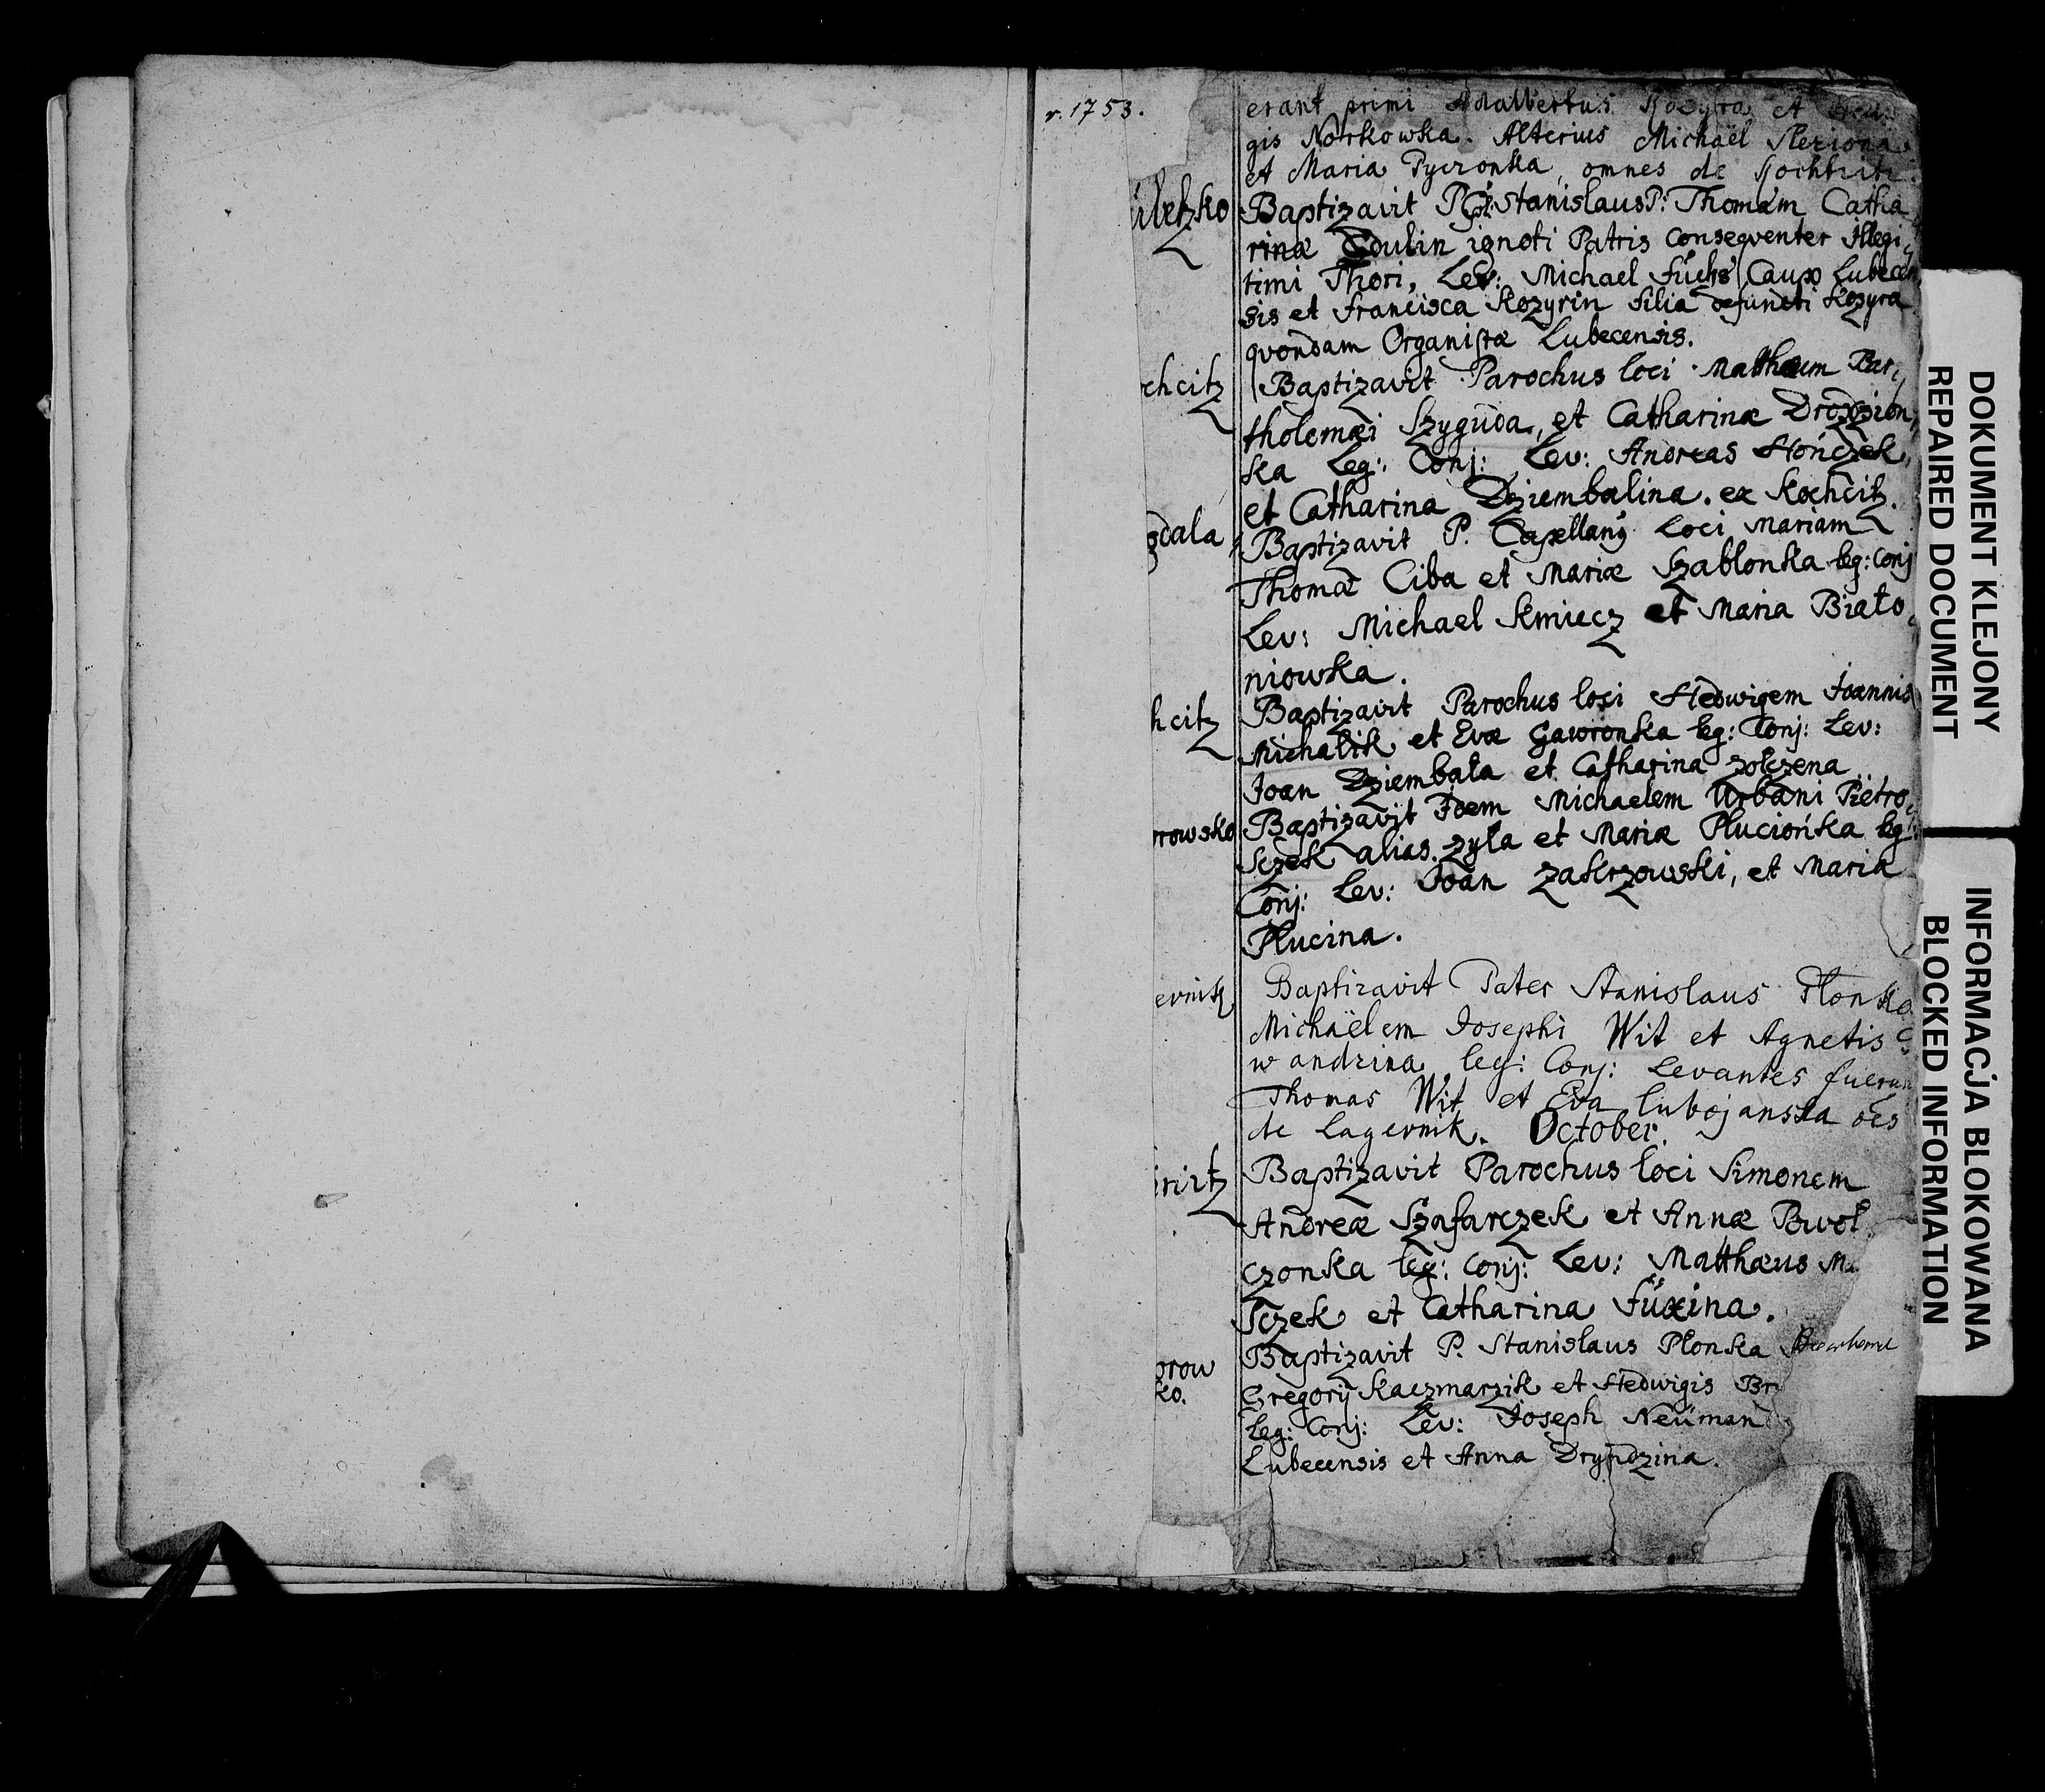 r. 1753.
erant primi Adalbertus Kozyra, et
gis Norkowka. Alterius Michaël
et Maria Pyczonka, omnes de
Baptizavit P. Stanislaus P: Thomam Catha
rinæ ignoti Patris conseqventer Illegi,
timi Thori, Lev: Michael Füchs Caupo Lubecen
sis et Francisca Kozyrin filia defuncti Kozyra
qvondam Organistæ Lubecensis.
chcitz
Baptizavit Parochus loci Matthæum Bar,
tholemæi Szygüda, et Catharinæ
ka Leg: Conj: Lev: Andreas Hończek,
et Catharina Dziembalina. ex Kochcitz.
Baptizavit P. Capellanq loci Mariam
Thomæ Ciba et Mariæ Szablonka leg: Conj
Lev: Michael Kmiecz et Maria Biato,
niowska.
hcitz
Baptizavit Parochus loci Hedwigem Joannis
Michalik et Evæ Gawronka leg: Conj: Lev:
Joan Dziembała et Catharina
rowsko
Baptizavit Idem Michaelem Urbani Pietro,
sczek alias zyła et Mariæ Pluciońka leg:
Conj: Lev: Joan Zakrzowski, et Maria
Plucina.
Baptizavit Pater Stanislaus Płonka
Michaëlem Josephi Wit et Agnetis
wandzina leg: Conj: Levantes fuerun
Thomas Wit et Eva lubojanska oes
de Lagewnik. October.
Baptizavit Parochus loci Simonem
Andreæ Szafarczek et Annæ Powoł
czonka leg: Conj: Lev: Matthæus
sczek et Catharina Füxina.
Baptizavit P. Stanislaus Płonka
orow
ko.
Gregorij Kaczmarzik et Hedwigis Br
Leg: Conj: Lev: Joseph Neüman
Lubecensis et Anna Dryndzina.
DOKUMENT KLEJONY
REPAIRED DOCUMENT
INFORMACJA BLOKOWANA
BLOCKED INFORMATION